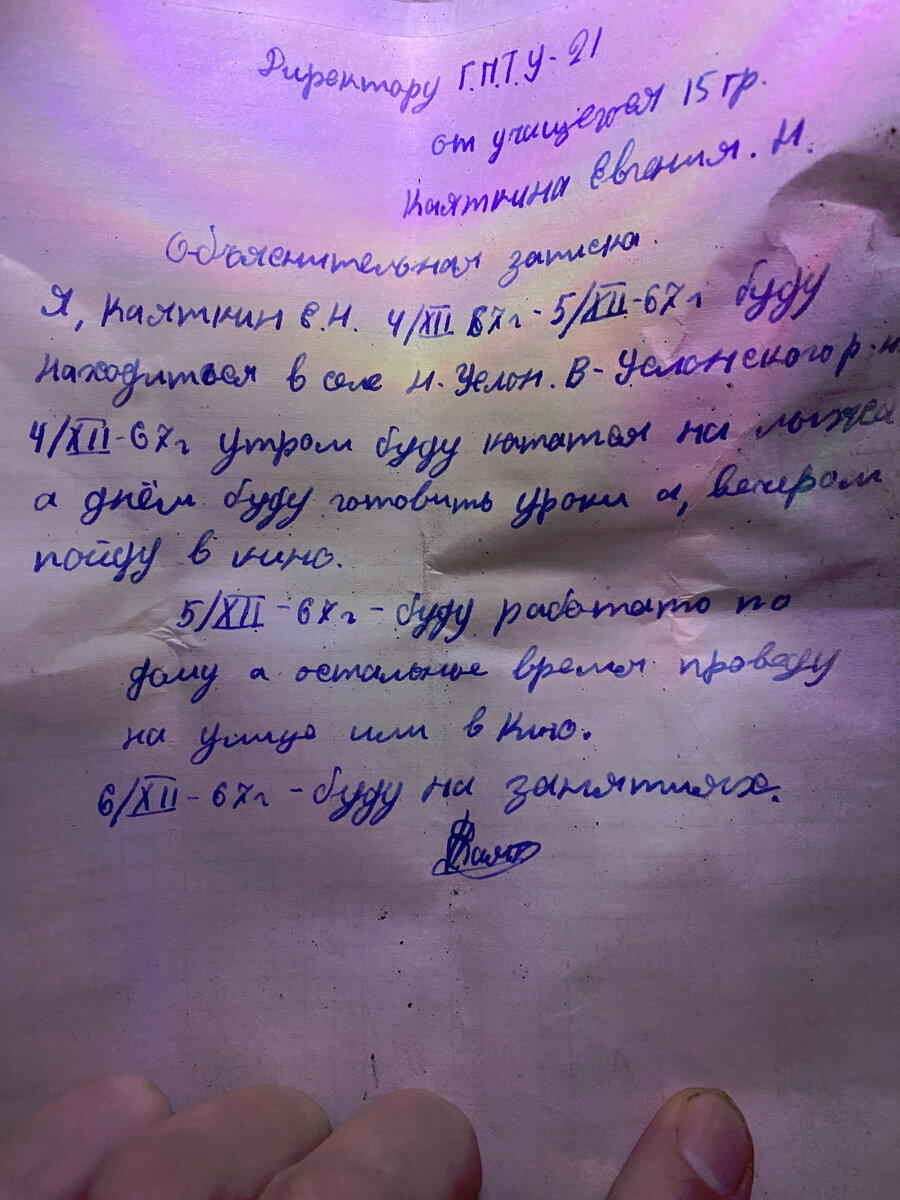 Директору Г.П.Т.У-21
от учищегося 15 гр.
Каяткина Евгения. Н.
Объяснительная записка.
Я, Каяткин Е.Н. 4/XII 67г - 5/XII-67г буду
находиться в селе Н-Услон. В-Услонского р-н
4/XII-67г утром буду кататся на лыжа
а днём буду готовить уроки а, вечером
пойду в кино.
5/XII-67г - буду работать по
дому а остальное время проведу
на улице или в кино.
6/XII-67г - буду на занятиях.
Каят